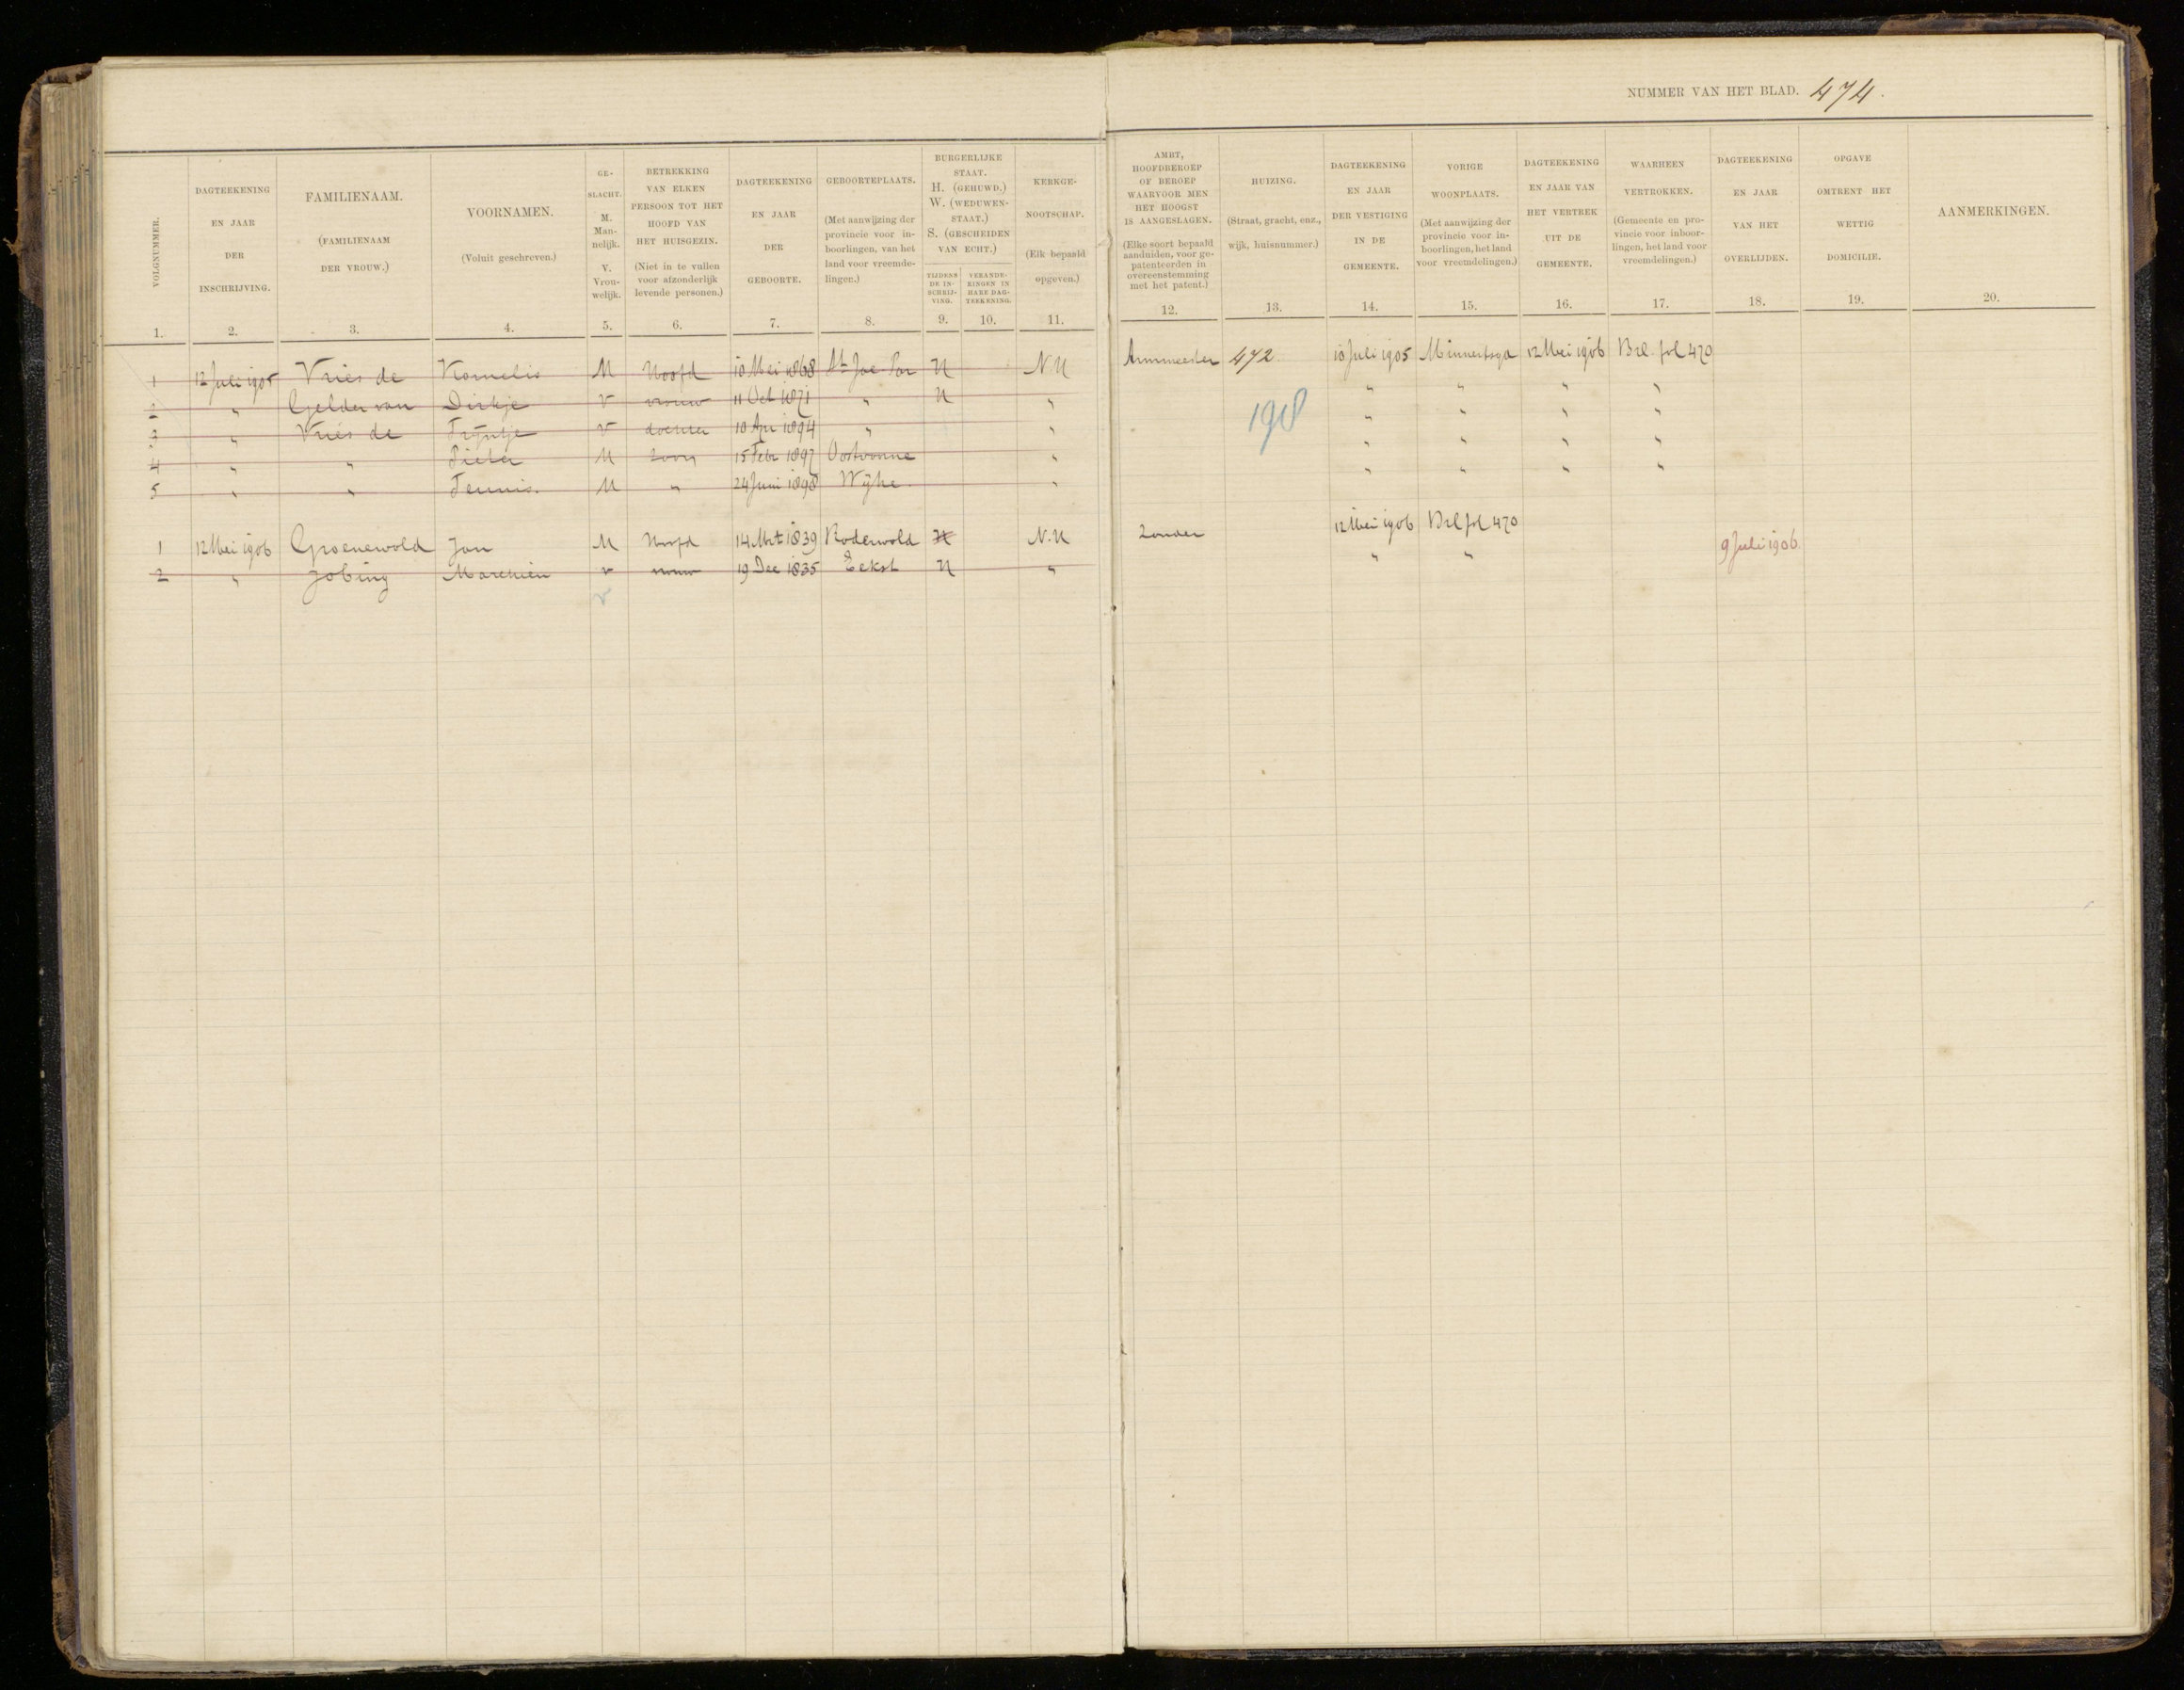 NUMMER VAN HET BLAD. 474.
VOLGNUMMER. 1.
DAGTEEKENING EN JAAR DER INSCHRIJVING. 2.
FAMILIENAAM. (FAMILIENAAM DER VROUW.) 3.
VOORNAMEN. (Voluit geschreven.) 4.
GE-SLACHT. M. Man-nelijk. V. Vrou-welijk. 5.
BETREKKING VAN ELKEN PERSOON TOT HET HOOFD VAN HET HUISGEZIN. (Niet in te vullen voor afzonderlijk levende personen.) 6.
DAGTEEKENING EN JAAR DER GEBOORTE. 7.
GEBOORTEPLAATS. (Met aanwijzing der provincie voor in-boorlingen, van het land voor vreemde-lingen.) 8.
BURGERLIJKE STAAT. H. (GEHUWD.) W. (WEDUWEN-STAAT.) S. (GESCHEIDEN VAN ECHT.)
TIJDENS DE IN-SCHRIJ-VING. 9.
VERANDE-RINGEN IN HARE DAG-TEEKENING. 10.
KERKGE-NOOTSCHAP. (Elk bepaald opgeven.) 11.
AMBT, HOOFDBEROEP OF BEROEP WAARVOOR MEN HET HOOGST IS AANGESLAGEN. (Elke soort bepaald aanduiden, voor ge-patenteerden in overeenstemming met het patent.) 12.
HUIZING. (Straat, gracht, enz., wijk, huisnummer.) 13.
DAGTEEKENING EN JAAR DER VESTIGING IN DE GEMEENTE. 14.
VORIGE WOONPLAATS. (Met aanwijzing der provincie voor in-boorlingen, het land voor vreemdelingen.) 15.
DAGTEEKENING EN JAAR VAN HET VERTREK UIT DE GEMEENTE. 16.
WAARHEEN VERTROKKEN. (Gemeente en pro-vincie voor inboor-lingen, het land voor vreemdelingen.) 17.
DAGTEEKENING EN JAAR VAN HET OVERLIJDEN. 18.
OPGAVE OMTRENT HET WETTIG DOMICILIE. 19.
AANMERKINGEN. 20.
1 12 Juli 1905 Vries de Kornelis M Hoofd 10 Mei 1868 St Jac Par H NH Armmeester 472 10 Juli 1905 Minnertsga 12 Mei 1906 Bzl. fol 470
2 " Gelder van Dirkje V vrouw 11 Oct 1871 " H " " " " "
3 " Vries de Trijntje V dochter 10 Apr 1894 " " 198 " " " "
4 " " Pieter M zoon 15 Febr 1897 Oostvoorne " " " " "
5 " " Teunis. M " 24 Juni 1898 Wijhe " " " " "
1 12 Mei 1906 Groenewold Jan M Hoofd 14 Mrt 1839 Roderwold H N.H Zonder 12 Mei 1906 Bzl fol 470
2 " Jobing Marchien V vrouw 19 Dec 1835 Eekst H " " " 9 Juli 1906.
V